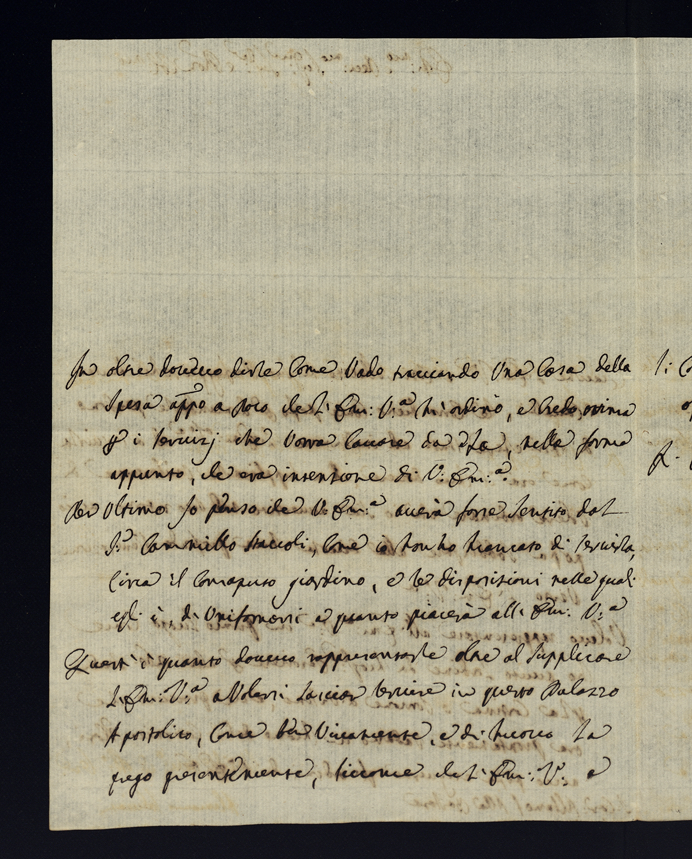 In oltre dovevo dirle Come Vado tracciando Una Cosa della
Spesa app.o a poco che l'Em: V.a hà ordinò, e Credo, ottima
p i servizj che Vorrà Cavare da essa, nella forma
appunto, che era intenzione di V: Em:a.
Per Ultimo Io penso che V: Em:a averà forse Sentito dal
S.r Cammillo Staccoli, Come io non ho mancato di servirla,
Circa il Consaputo giardino, e le disposizioni nelle quali
egli è, di Uniformarsi a quanto piacerà all' Em: V.a
Quest' è quanto dovevo rappresentarle oltre al Supplicare
l'Em: V.a a Volersi Lasciar Servire in questo Palazzo
Apostolico, Come ben Vivamente, e di nuovo La
prego presentemente, siccome che l'Em: V: e